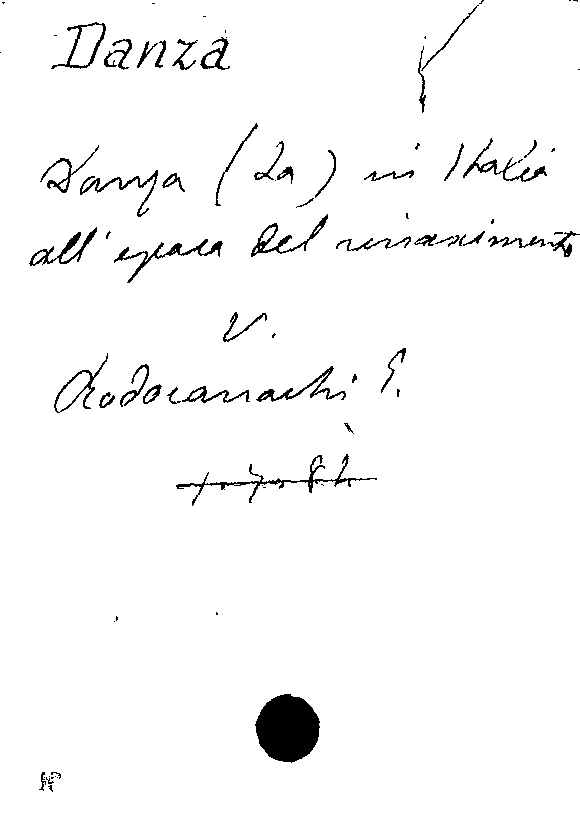 Danza
Danza (La) in Italia
all'epoca del rinascimento
V.
Rodocanachi E.